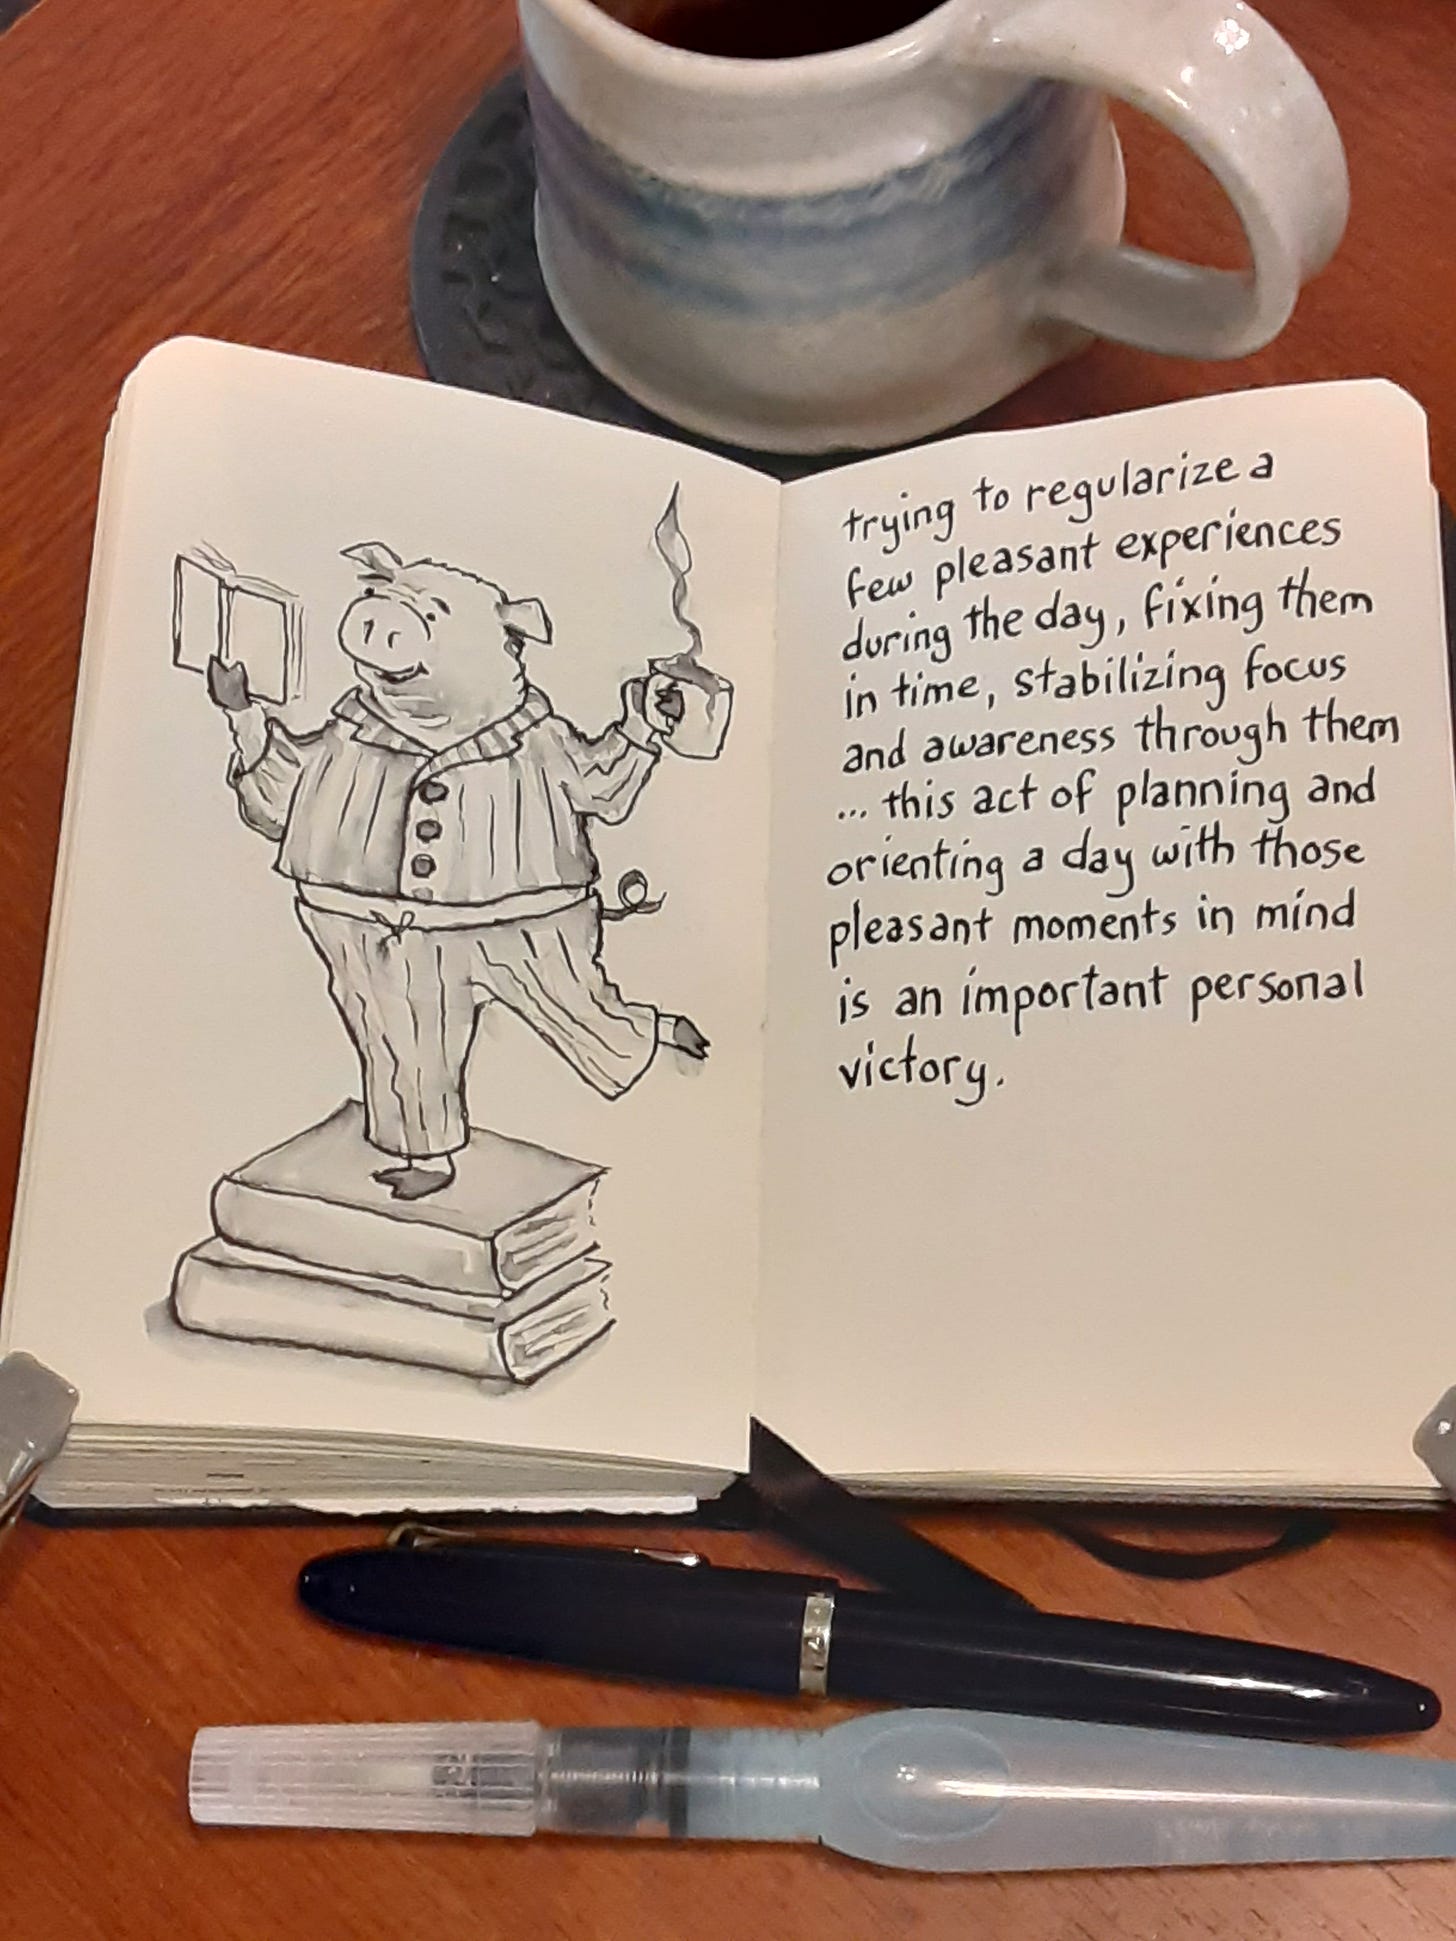 trying to regularize a
few pleasant experiences
during the day, fixing them
in time, stabilizing focus
and awareness through them
... this act of planning and
orienting a day with those
pleasant moments in mind
is an important personal
victory.